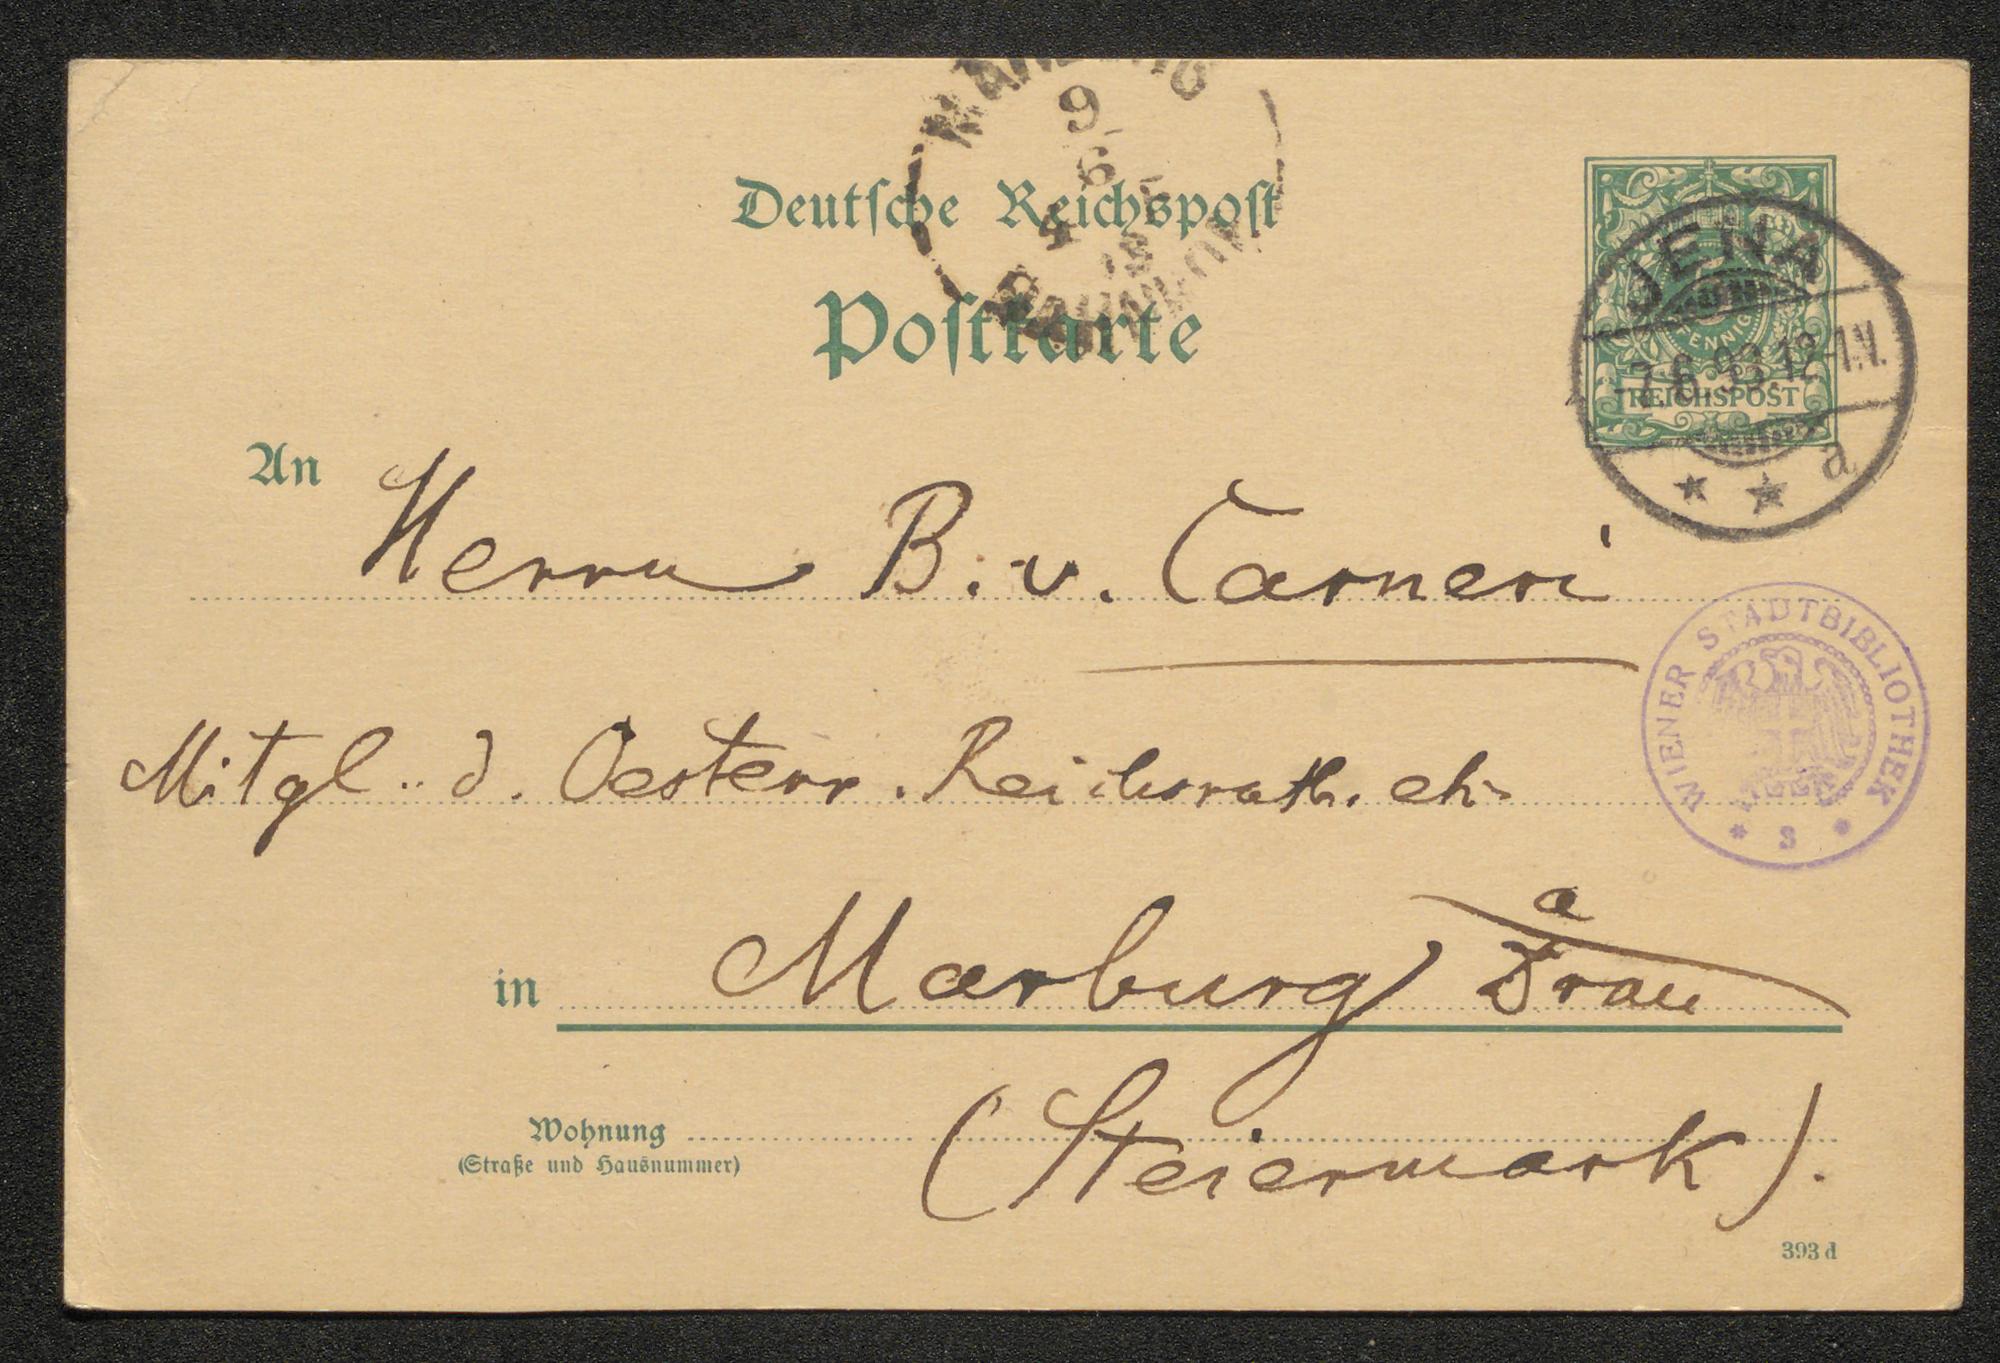 MARBURG
9
6
BAHNHOF
Deutsche Reichspost
Postkarte
JENA
PFENNIG
7.6.93.12-1.N.
REICHSPOST
a
An Herrn B. v. Carneri
WIENER STADTBIBLIOTHEK
Mitgl. d. Oesterr. Reichsrath. etc
in Marburg a Drau
Wohnung (Steiermark).
(Straße und Hausnummer)
393 d